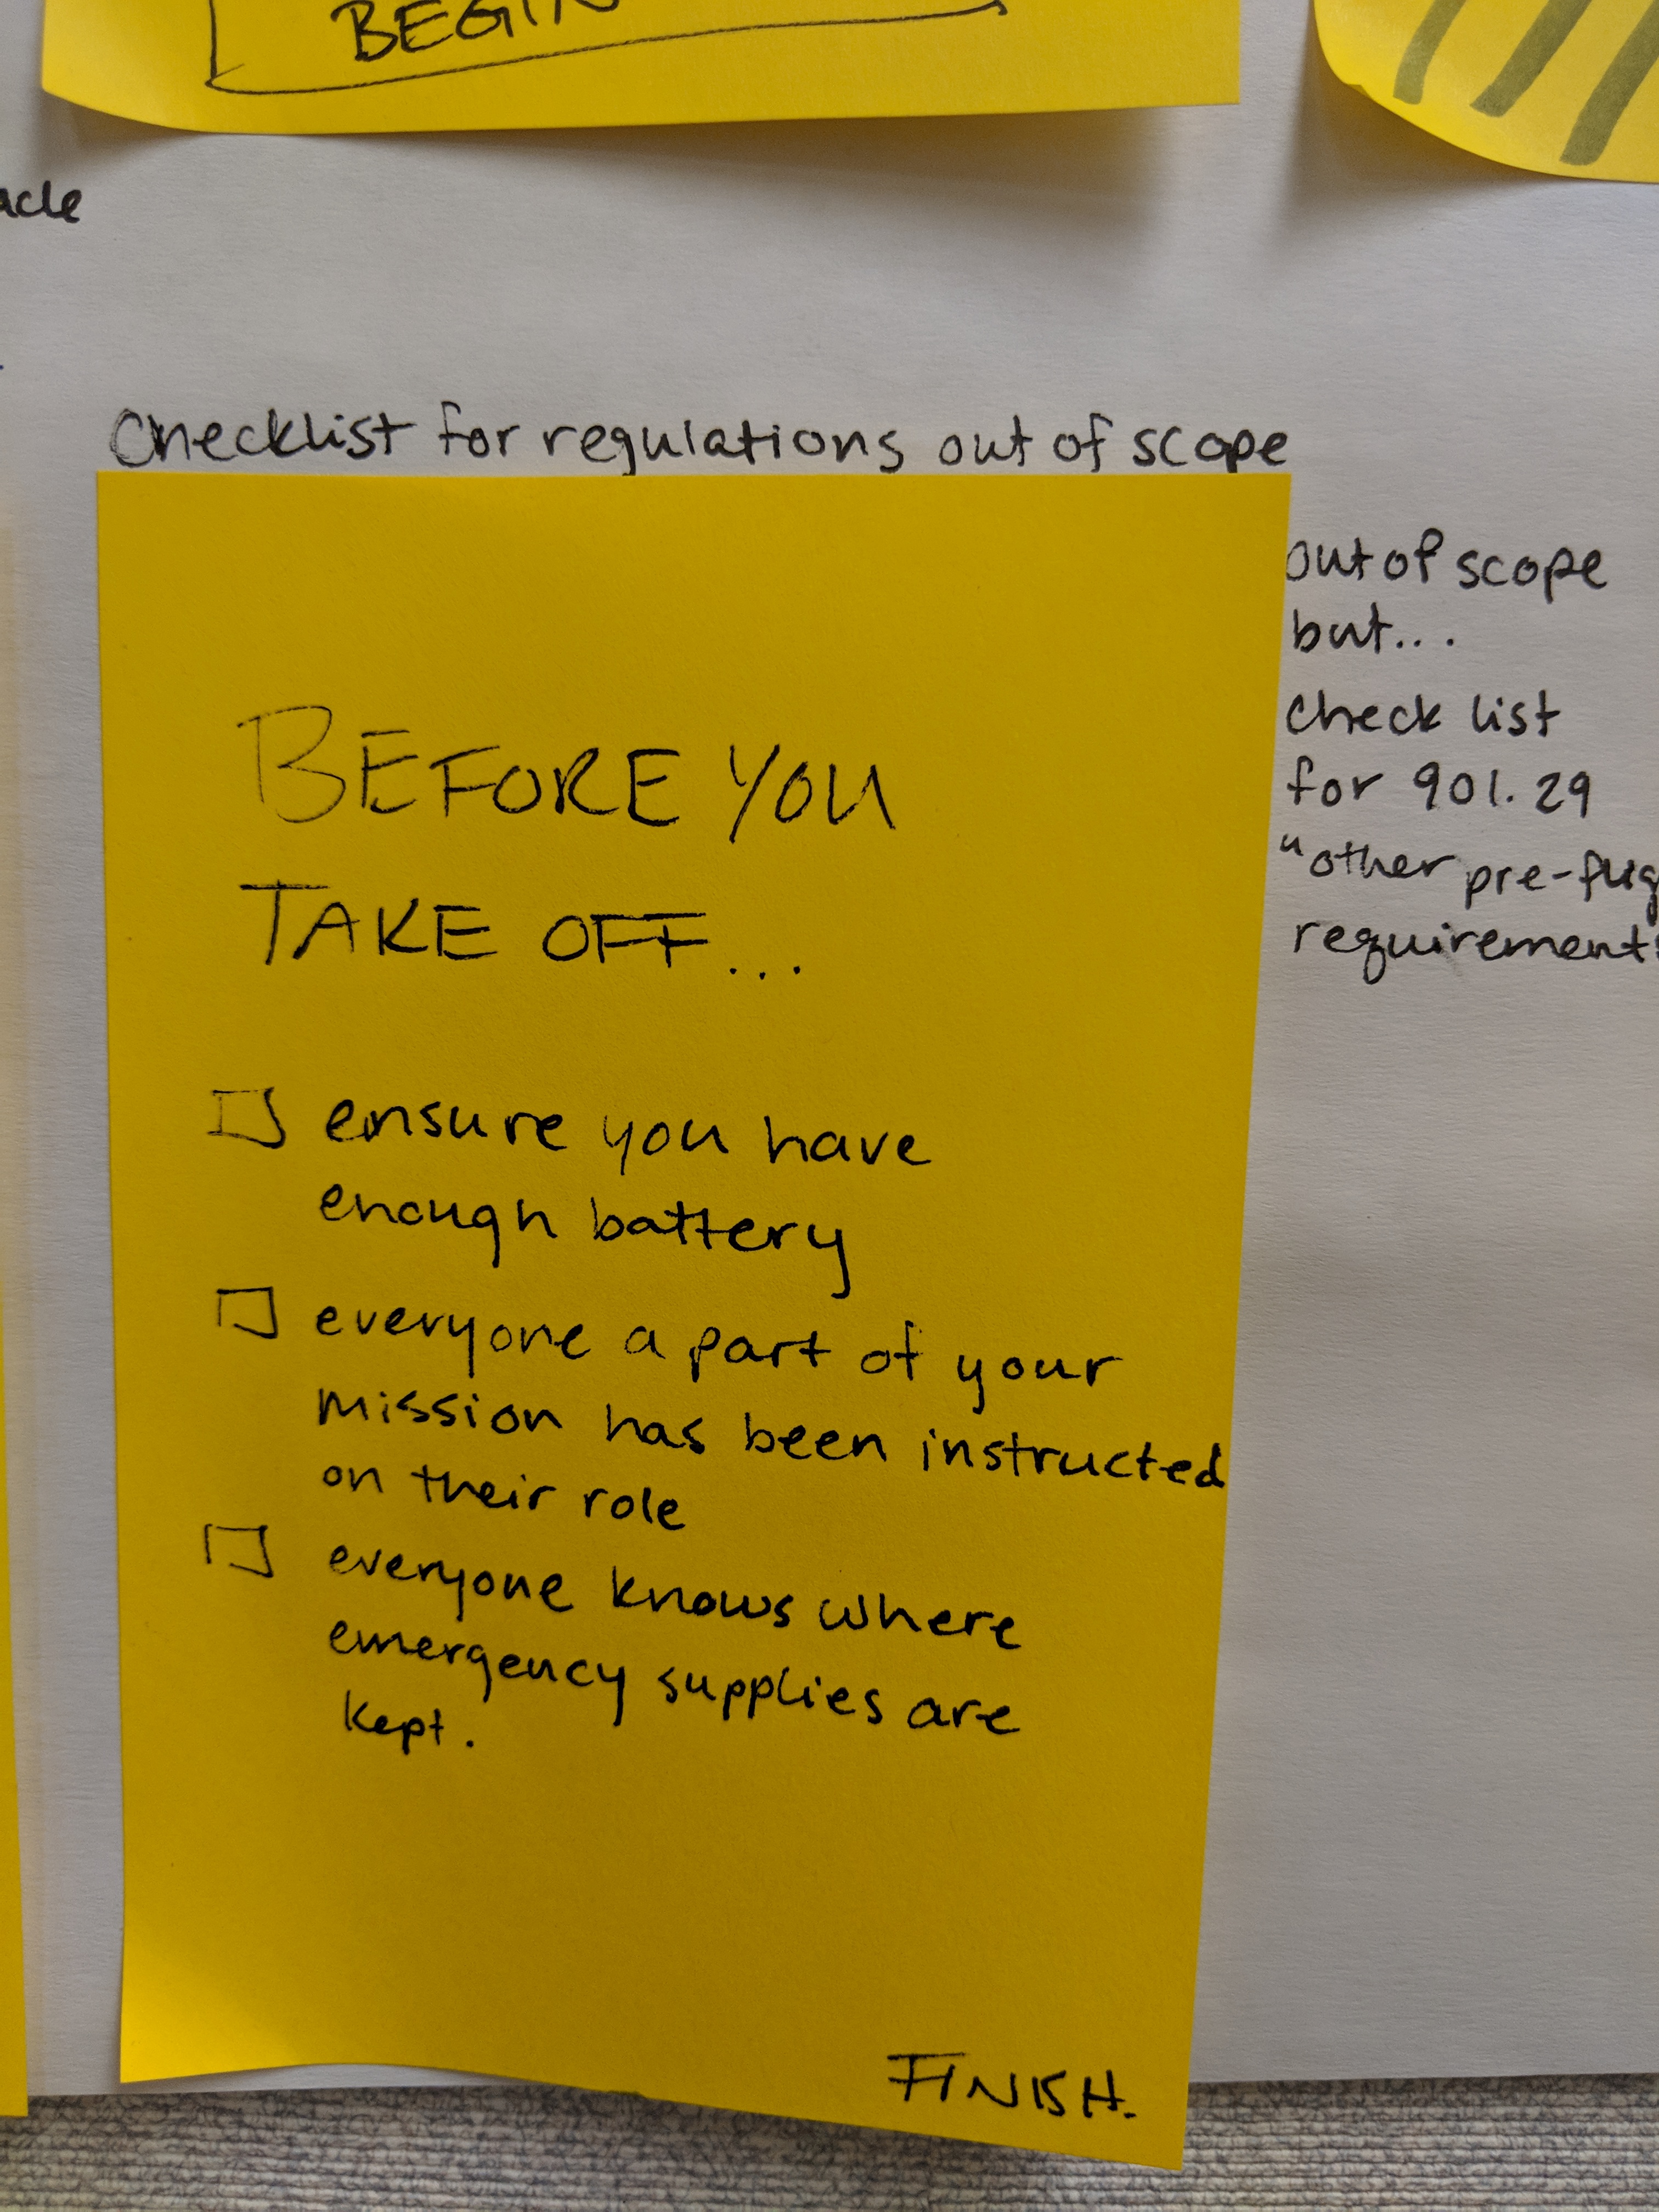 BEGIN
Checklist for regulations out of scope
BEFORE YOU
TAKE OFF...
ensure you have
enough battery
everyone a part of your
mission has been instructed
on their role
everyone knows where
emergency supplies are
kept.
FINISH.
out of scope
but...
check list
for 901.29
"other pre-flig
requirements